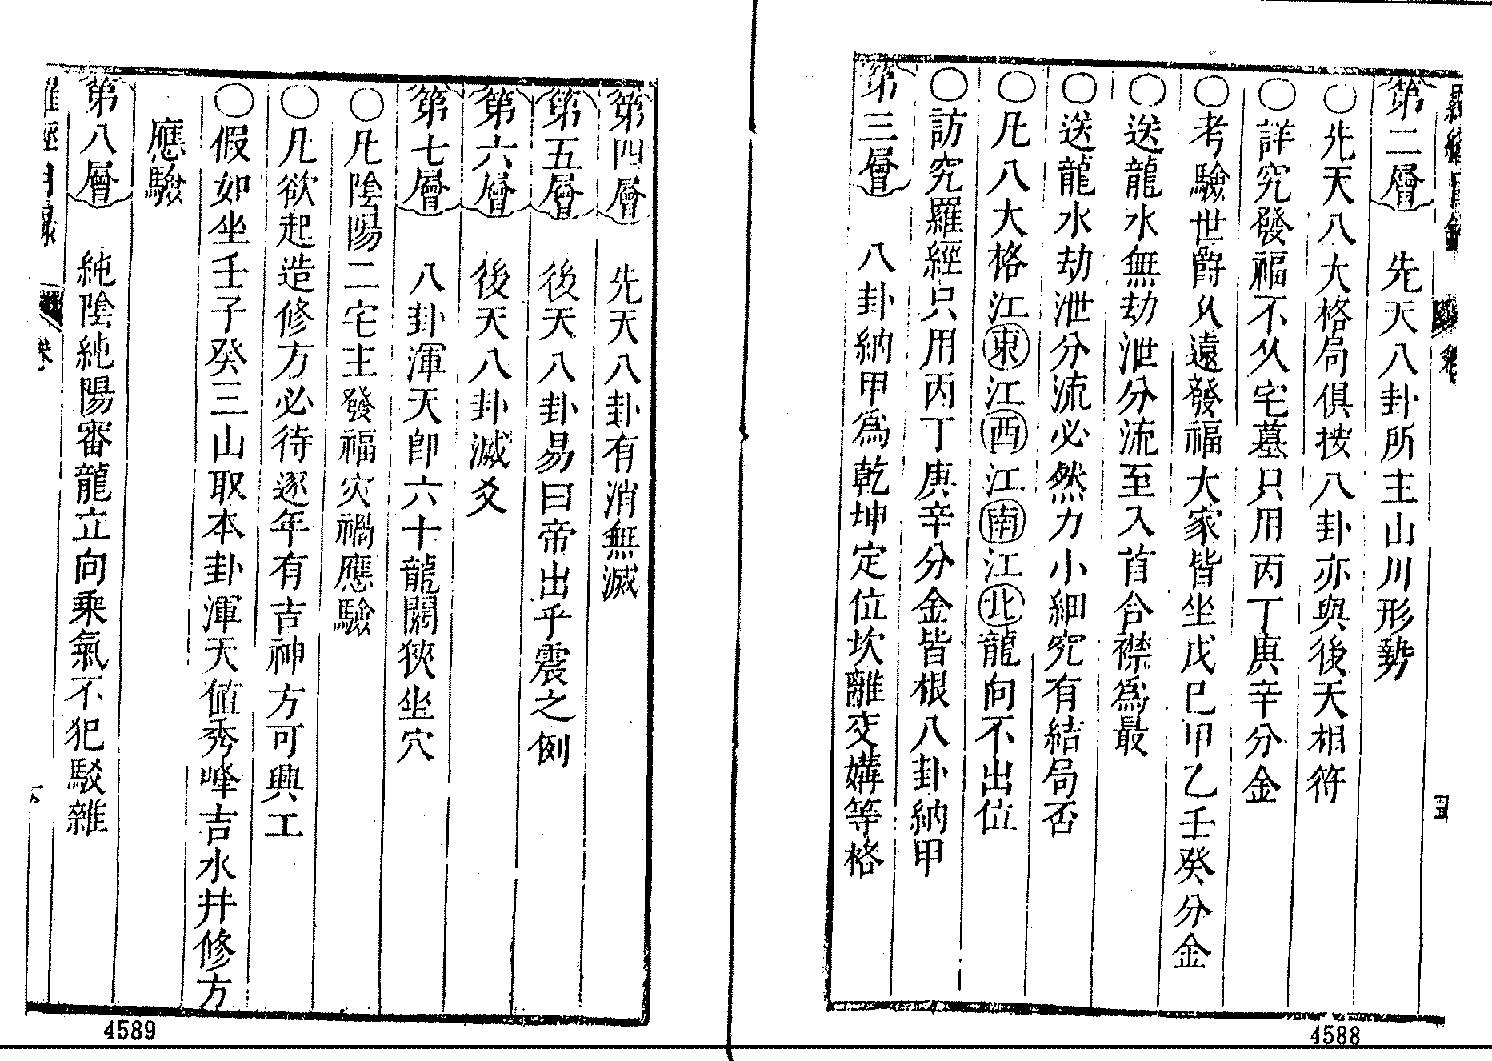 第二層　先天八卦所主山川形勢
〇先天八大格局俱按八卦亦與後天相符
〇詳究發福不久宅墓只用丙丁庚辛分金
〇考驗世爵久遠發福大家皆坐戊巳甲乙壬癸分金
〇送龍水無劫泄分流至入首合襟爲最
〇送龍水劫泄分流必然力小細究有結局否
〇凡八大格江東江西江南江北龍向不出位
〇訪究羅經只用丙丁庚辛分金皆根八卦納甲
第三層　八卦納甲爲乾坤定位坎離交媾等格
五
4588
第四層　先天八卦有消無滅
第五層　後天八卦易曰帝出乎震之例
第六層　後天八卦滅爻
第七層　八卦渾天卽六十龍闊狹坐穴
〇凡陰陽二宅主發福灾禍應驗
〇凡欲起造修方必待逐年有吉神方可興工
〇假如坐壬子癸三山取本卦渾天値秀峰吉水井修方
應驗
第八層　純陰純陽審龍立向乘氣不犯駁雜
4589